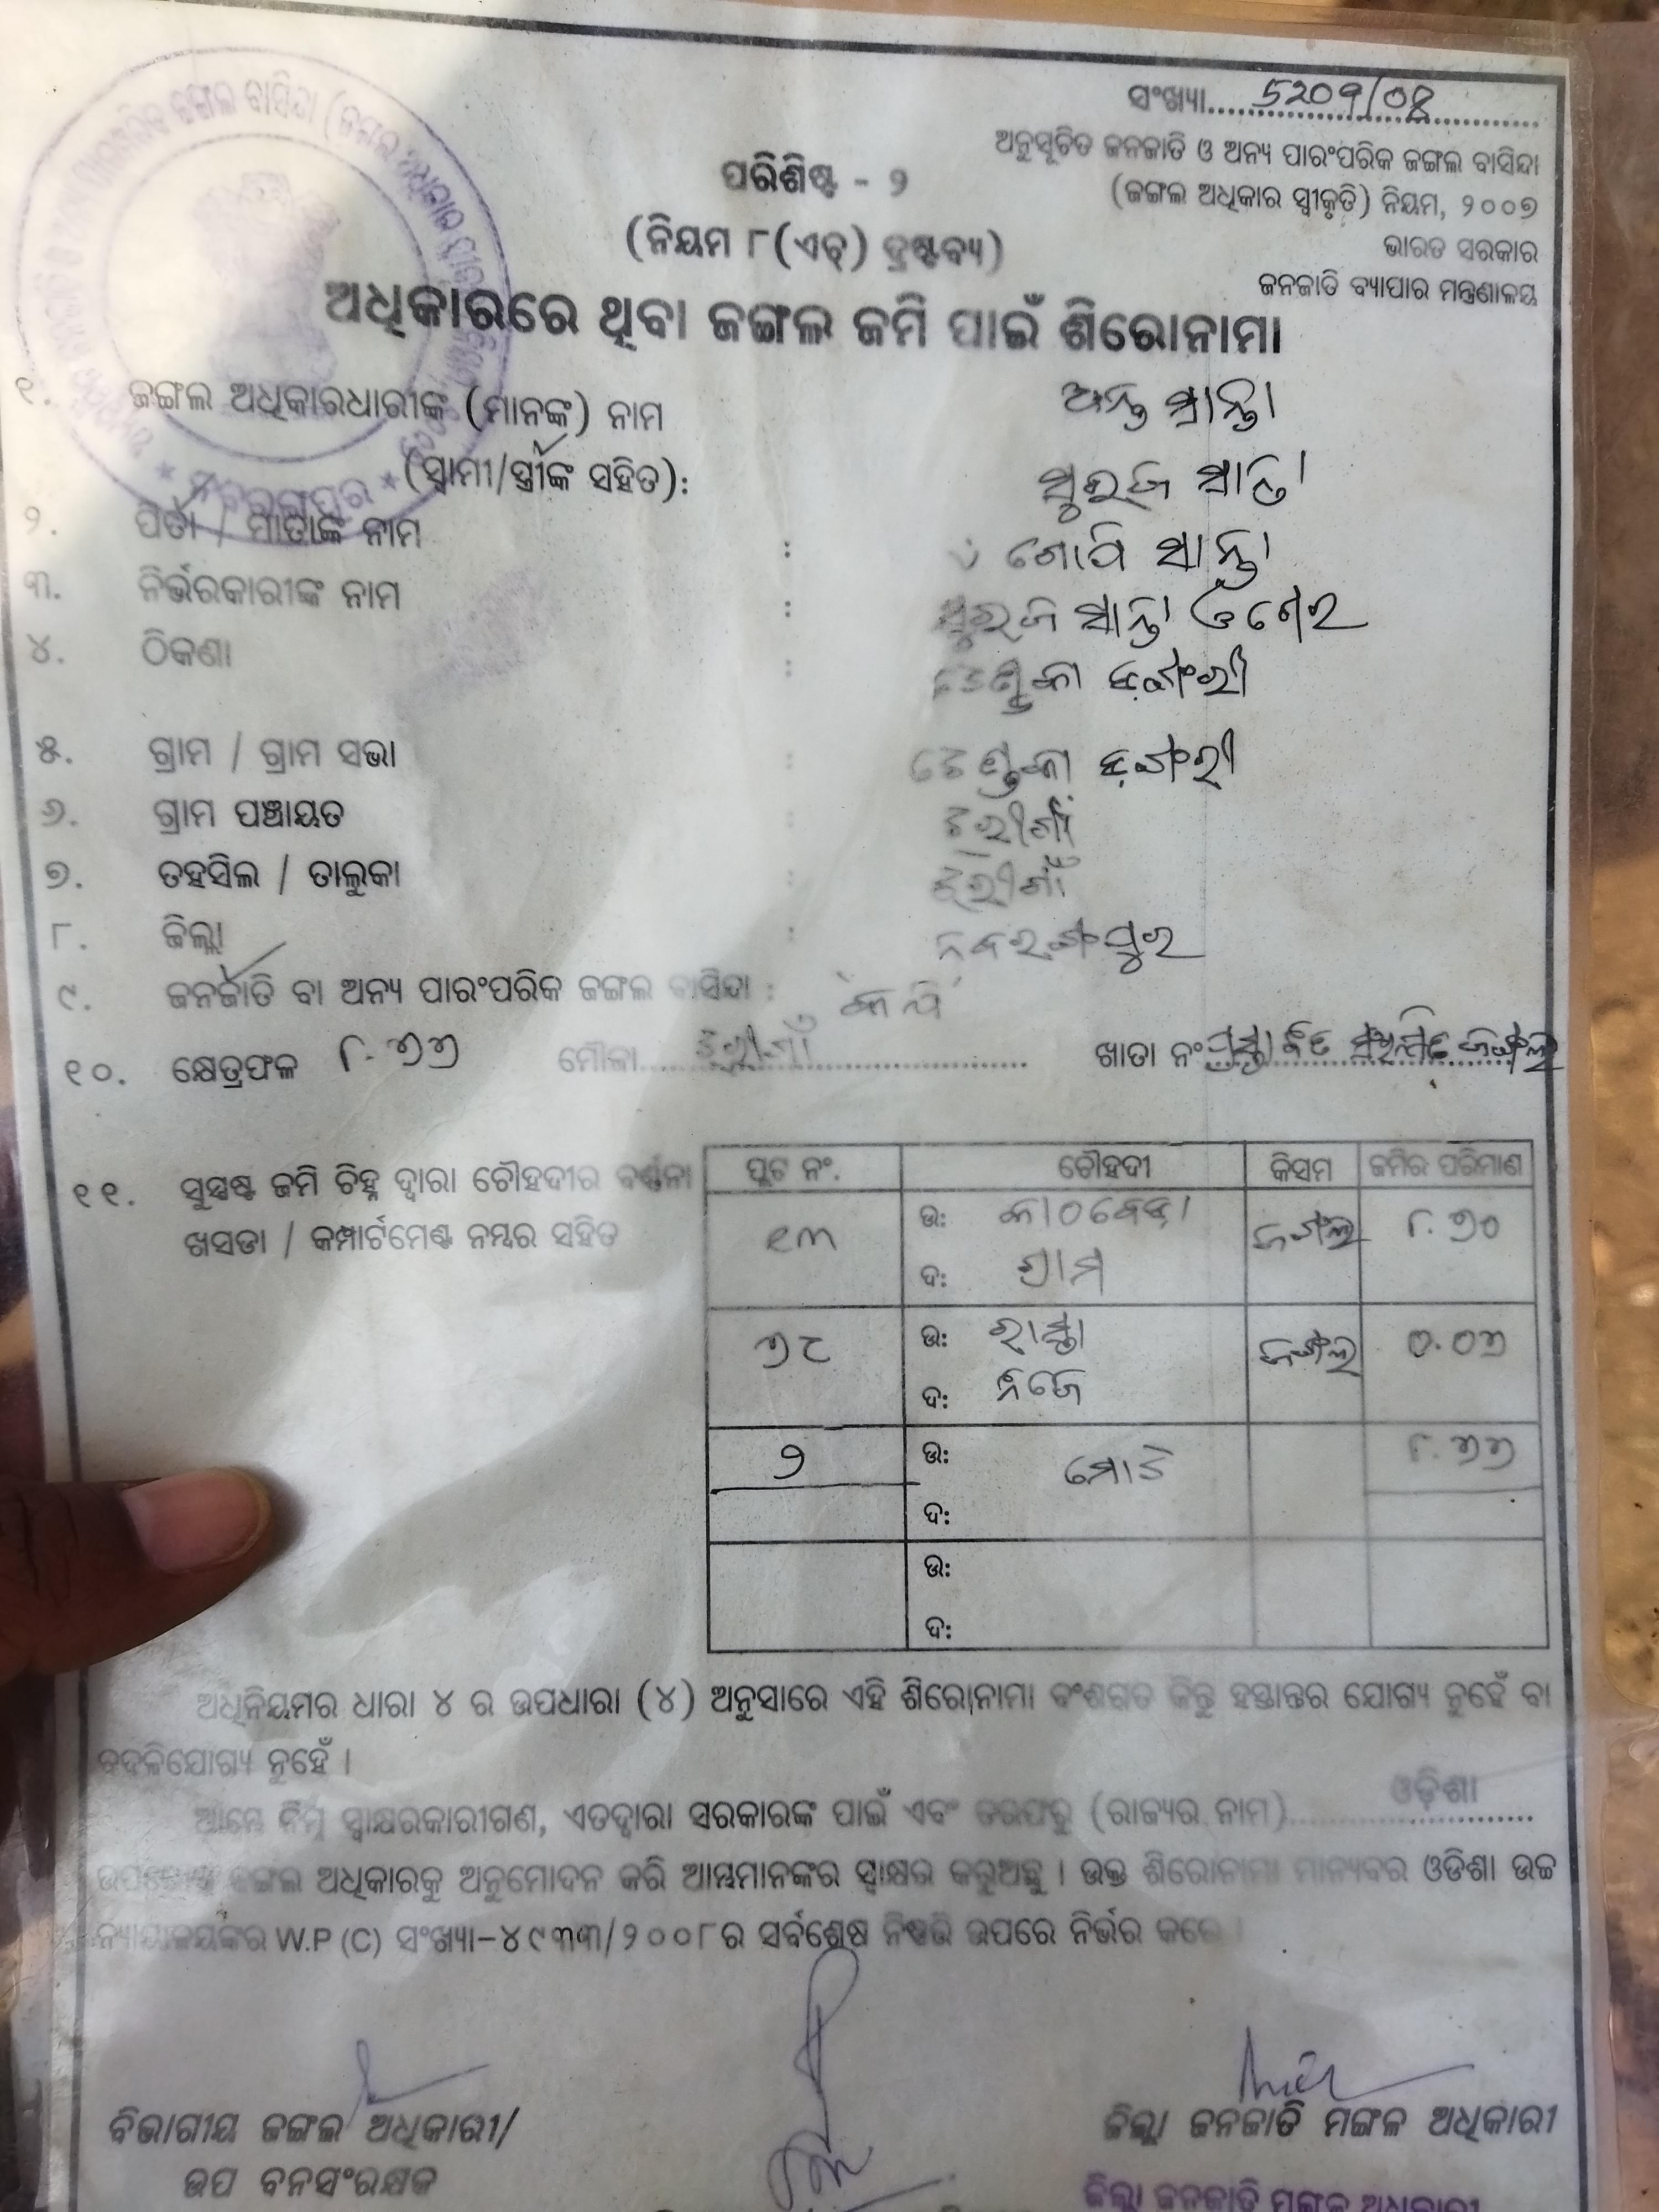 ସଂଖ୍ୟା
ଅନୁସୂଚିତ ଜନଜାତି ଓ ଅନ୍ୟ ପାରଂପରିକ ଜଙ୍ଗଲ ବାସିନ୍ଦା
(ଜଙ୍ଗଲ ଅଧିକାର ସ୍ୱୀକୃତି) ନିୟମ, ୨୦୦୭
ଭାରତ ସରକାର
ଜନଜାତି ବ୍ୟାପାର ମନ୍ତ୍ରଣାଳୟ
ପରିଶିଷ୍ଟ - ୨
(ନିୟମ ୮(ଏଚ୍) ଦ୍ରଷ୍ଟବ୍ୟ)
ଅଧିକାରରେ ଥିବା ଜଙ୍ଗଲ ଜମି ପାଇଁ ଶିରୋନାମା
୧. ଜଙ୍ଗଲ ଅଧିକାରଧାରୀଙ୍କ (ମାନଙ୍କ) ନାମ
(ସ୍ୱାମୀ/ସ୍ତ୍ରୀଙ୍କ ସହିତ):
୨. ପିତା / ମାତାଙ୍କ ନାମ : ଗୋପି ସାନ୍ତା
୩. ନିର୍ଭରକାରୀଙ୍କ ନାମ :
୪. ଠିକଣା :
୫. ଗ୍ରାମ / ଗ୍ରାମ ସଭା :
୬. ଗ୍ରାମ ପଞ୍ଚାୟତ : ଝରୀଗାଁ
୭. ତହସିଲ / ତାଲୁକା : ଝରୀଗାଁ
୮. ଜିଲ୍ଲା : ନବରଙ୍ଗପୁର
୯. ଜନଜାତି ବା ଅନ୍ୟ ପାରଂପରିକ ଜଙ୍ଗଲ ବାସିନ୍ଦା :
୧୦. କ୍ଷେତ୍ରଫଳ ୮.୬୬ ମୌଜା ଝରୀଗାଁ ଖାତା ନଂ
୧୧. ସୁସ୍ପଷ୍ଟ ଜମି ଚିହ୍ନ ଦ୍ୱାରା ଚୌହଦୀର ବର୍ଣ୍ଣନା
ଖସଡା / କମ୍ପାର୍ଟମେଣ୍ଟ ନମ୍ବର ସହିତ
ପ୍ଲଟ ନଂ. ଚୌହଦୀ କିସମ ଜମିର ପରିମାଣ
୧୩ ଉ: ଜଙ୍ଗଲ ୮.୬୦
ଦ: ଗ୍ରାମ
୬୯ ଉ: ରାସ୍ତା ଜଙ୍ଗଲ ୦.୦୬
ଦ: ନିଜେ
୨ ଉ: ମୋଟ ୮.୬୬
ଦ:
ଉ:
ଦ:
ଅଧିନିୟମର ଧାରା ୪ ର ଉପଧାରା (୪) ଅନୁସାରେ ଏହି ଶିରୋନାମା ବଂଶଗତ କିନ୍ତୁ ହସ୍ତାନ୍ତର ଯୋଗ୍ୟ ନୁହେଁ ବା
ବଦଳିଯୋଗ୍ୟ ନୁହେଁ ।
ଆମ୍ଭେ ନିମ୍ନ ସ୍ୱାକ୍ଷରକାରୀଗଣ, ଏତଦ୍ୱାରା ସରକାରଙ୍କ ପାଇଁ ଏବଂ ତରଫରୁ (ରାଜ୍ୟର ନାମ) ଓଡ଼ିଶା
ଉପରୋକ୍ତ ଜଙ୍ଗଲ ଅଧିକାରକୁ ଅନୁମୋଦନ କରି ଆମ୍ଭମାନଙ୍କର ସ୍ୱାକ୍ଷର କରୁଅଛୁ । ଉକ୍ତ ଶିରୋନାମା ମାନ୍ୟବର ଓଡିଶା ଉଚ୍ଚ
ନ୍ୟାୟାଳୟଙ୍କର W.P (C) ସଂଖ୍ୟା-୪୯୩୩/୨୦୦୮ର ସର୍ବଶେଷ ନିଷ୍ପତ୍ତି ଉପରେ ନିର୍ଭର କରେ ।
ବିଭାଗୀୟ ଜଙ୍ଗଲ ଅଧିକାରୀ/
ଉପ ବନସଂରକ୍ଷକ
ଜିଲ୍ଲା ଜନଜାତି ମଙ୍ଗଳ ଅଧିକାରୀ
ଜିଲ୍ଲା ଜନଜାତି ମଙ୍ଗଳ ଅଧିକାରୀ